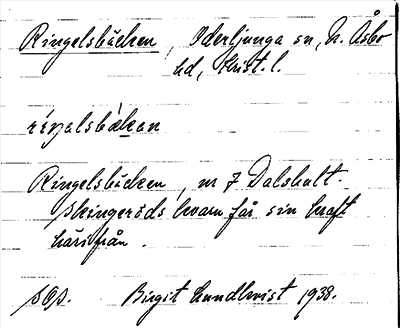 Ringelsbäcken, Oderljunga sn, N. Åsbo
hd, Krist. l.
ríŋalsbäkan
Ringelsbäcken, nr 7 Dalshult.
Skingeröds kvarn får sin kraft
härifrån.
Birgit Lundkvist 1938.